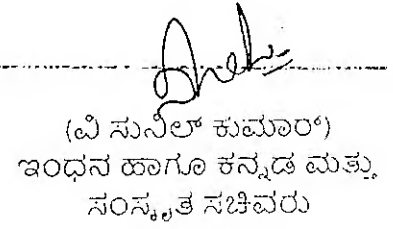 (ವಿ ಸುನಿಲ್ ಕುಮಾರ್)
ಇಂಧನ ಹಾಗೂ ಕನ್ನಡ ಮತ್ತು
ಸಂಸ್ಕೃತ ಸಚಿವರು